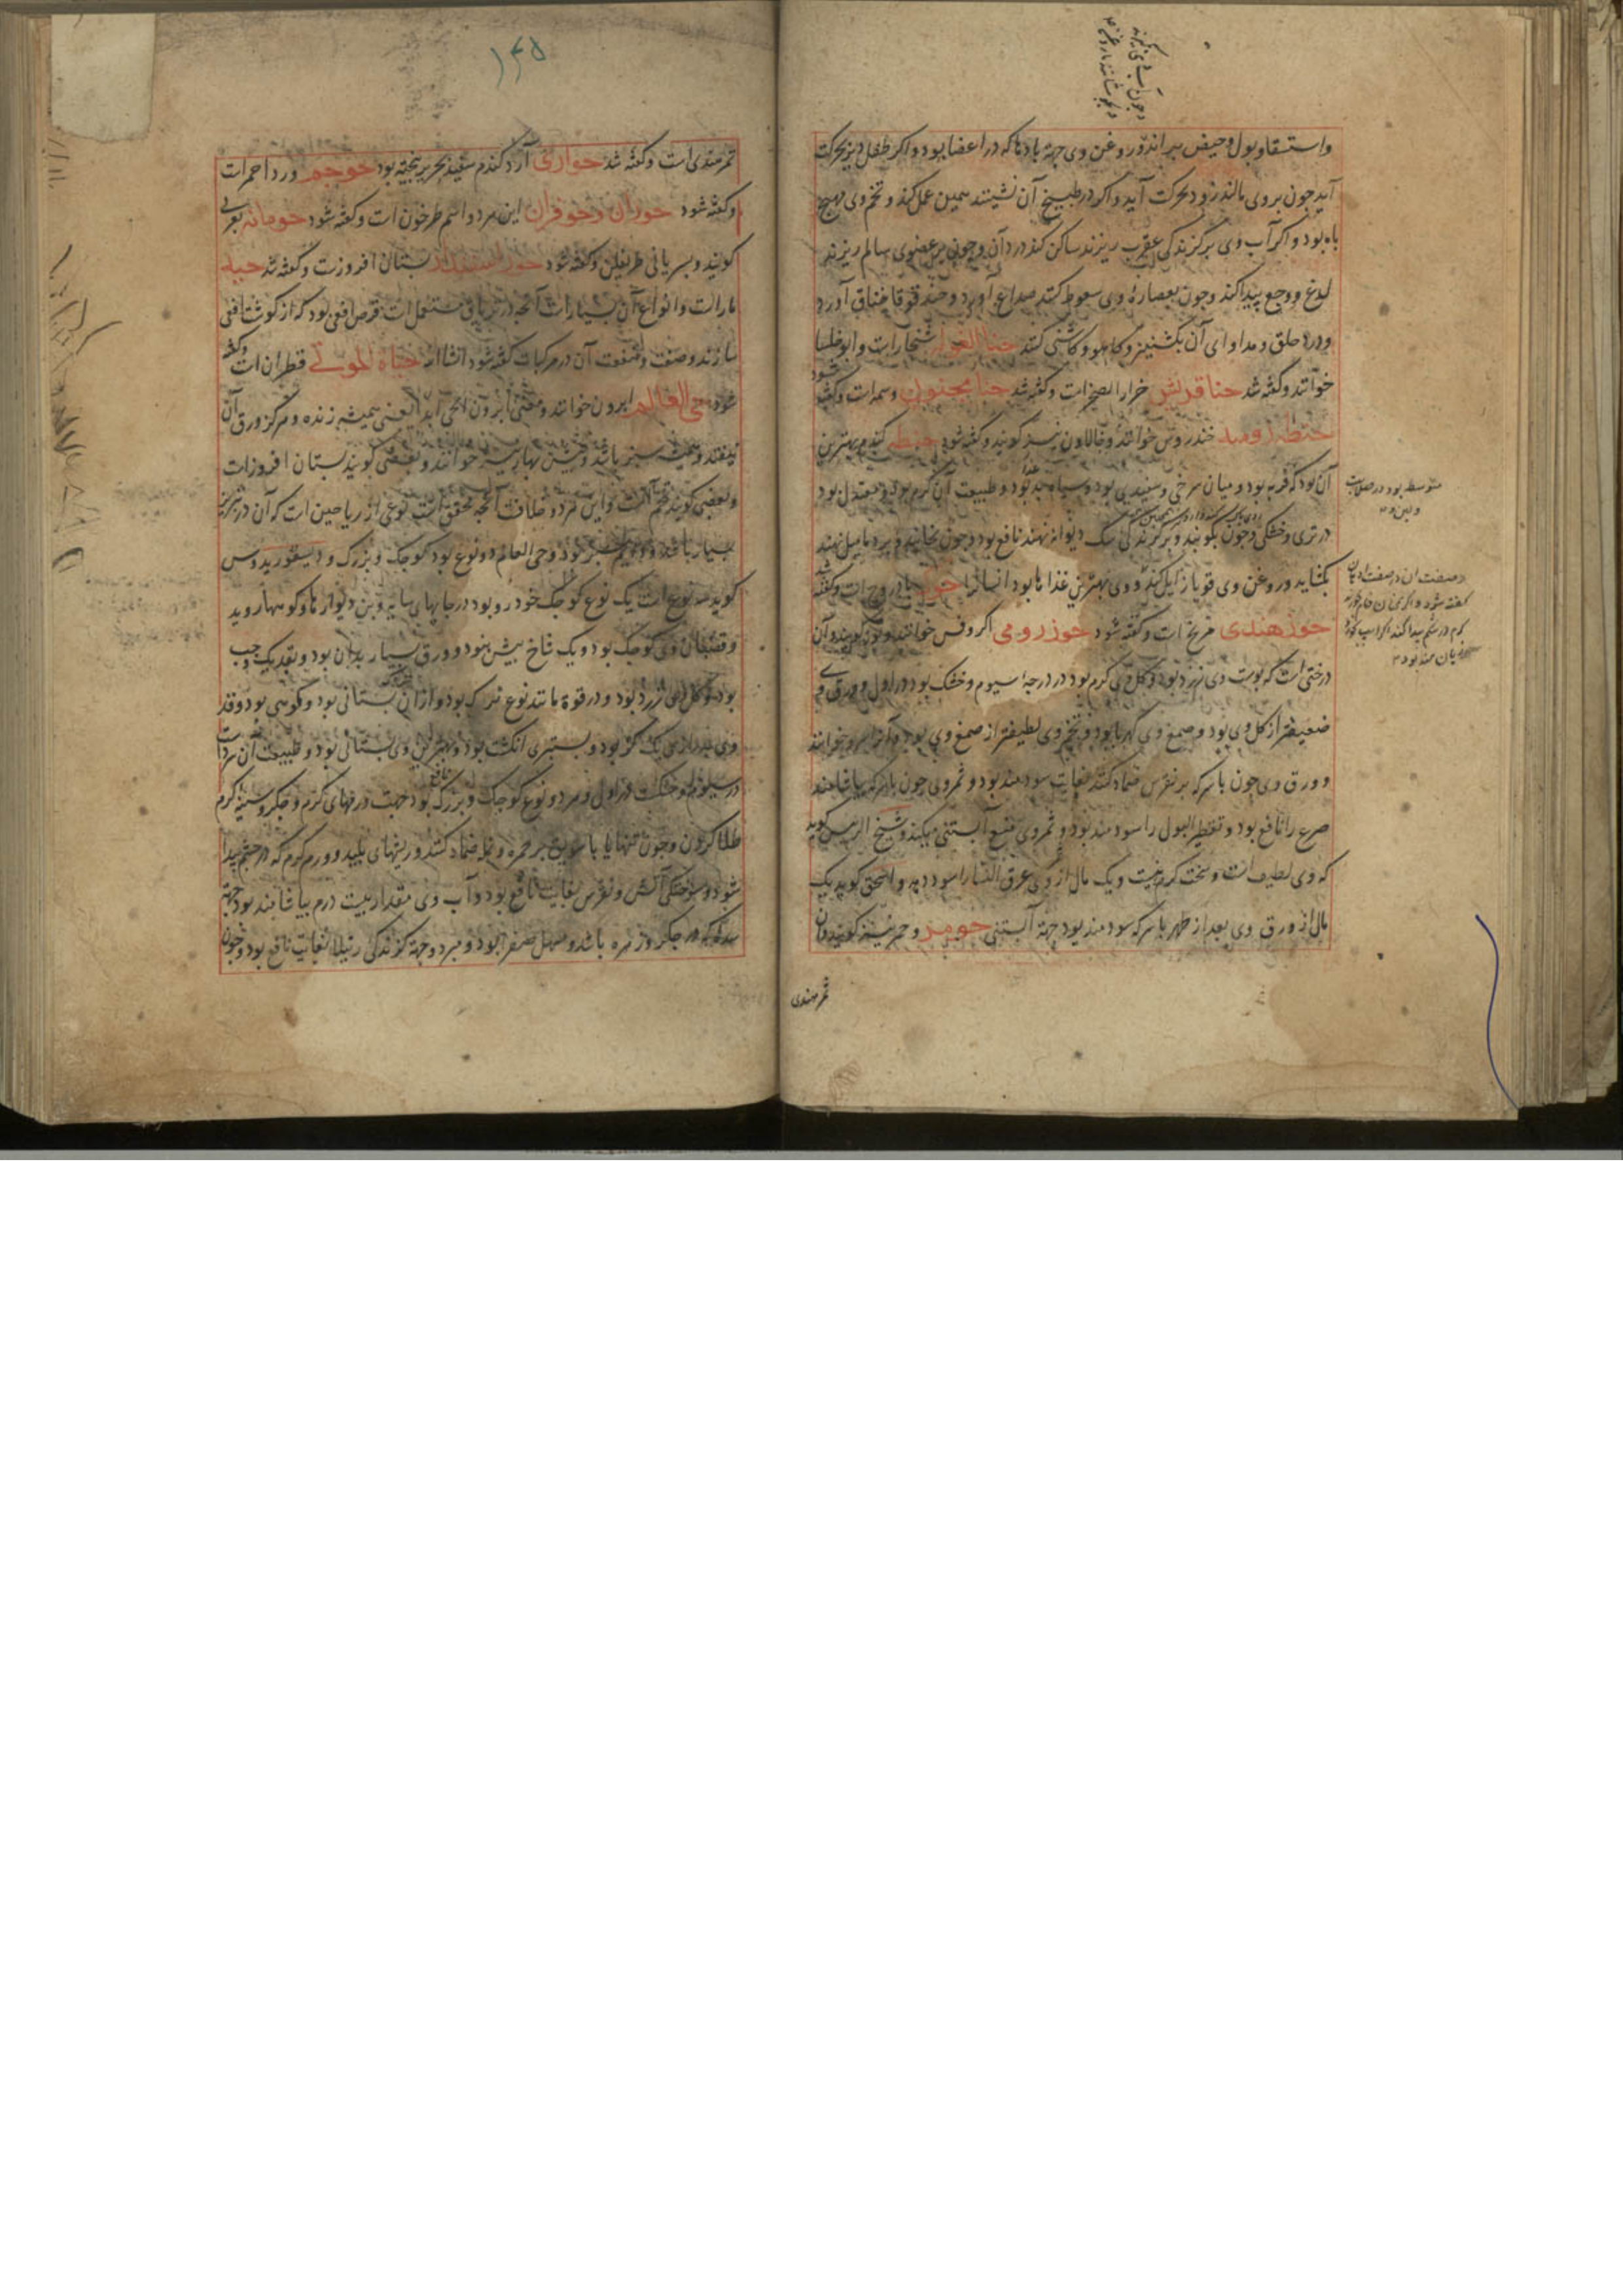 واستسقا و بول و حیض براند و روغن وی جهة بادها که در اعضا بود و اکر طفل دیر بحرکت
آید جون بروی مالند زود بحرکت آید و اکر در طبیخ آن نشینند همین عمل کند و تخم وی مهیج
باه بود و اکر آب وی بر کزندکی عقرب ریزند ساکن کند درد آن و جون بر عضوی سالم ریزند
لدغ و وجع پیدا کند و جون بعصارهٔ وی سعوط کنند صداع آورد و حندقوقا خناق آورد
و درد حلق و مداوای آن بکشنیز و کاهو و کاسنی کنند حنا الغوله شنجار است و ابوخلسا
خوانند و کفته شد حنا قریش حزاز الصخر است و کفته شد حنا مجنون وسمه است و کفته شود
حنطه رومیه خندروس خوانند و خالاون نیز کویند و کفته شود حنطه کندم بهترین
آن بود که فربه بود و میان سرخی و سفیدی بود و سیاه بد بود و طبیعت آن کرم بود و معتدل بود
در تری و خشکی و جون بکوبند و بر کزندکی سک دیوانه نهند نافع بود و جون بخایند و بر دمامیل نهند
بکشاید و روغن وی قوبا زایل کند و وی بهترین غذاها بود انسانرا حوک بادروج است و کفته شد
حوز هندی مریخ است و کفته شود حوز رومی اکروفس خوانند و توز کویند و آن
درختی است که پوست وی زرد بود و کل وی کرم بود در درجهٔ سیوم و خشک بود در اول و ورق وی
ضعیفتر از کل وی بود و صمغ وی کهربا بود و تخم وی لطیفتر از صمغ وی بود و آنرا سرو خوانند
و ورق وی جون با سرکه بر نقرس ضماد کنند بغایت سودمند بود و ثمر وی جون با سرکه بیاشامند
صرع را نافع بود و تقطیر البول را سودمند بود و ثمر وی منع آبستنی میکند و شیخ الرئیس کوید
که وی لطیف است و سخت کرم نیست و یک مثال از وی عرق النسا را سود دهد و اسحق کوید یک
مثال از ورق وی بعد از طهر با سرکه سودمند بود جهة آبستنی حومر و حمر نیز کویند و آن
تمر هندی
متوسط بود در صلابت
و لین
کفته شود و اکر نان خام خورند
کرم در شکم پیدا کند
زیان مند بود
۱۴۵
تمر هندی است و کفته شد حواری آرد کندم سفید بحریر بیخته بود حوجم ورد احمر است
و کفته شود حوران و حوفران این هر دو اسم طرخون است و کفته شود حومانه بعربی
کویند و بسریانی طریفلن و کفته شود بستان افروز است و کفته شد حیه
مار است و انواع آن بسیار است آنجه در تریاق مستعمل است قرص افعی بود که از کوشت افعی
سازند و صفت و منفعت آن در مرکبات کفته شود انشاالله حیاة الموتی قطران است و کفته
شود حی العالم ابرون خوانند و معنی ابرون الحی ابدا یعنی همیشه زنده و هرکز ورق آن
نیفتد و همیشه سبز باشد و همیشه بهار نیز خوانند و بعضی کویند بستان افروز است
و بعضی کویند و این هر دو خلاف است آنجه محقق است نوعی از ریاحین است که آن در تبریز
بسیار باشد و دایم سبز بود و حی العالم دو نوع بود کوجک و بزرک و دیسقوریدوس
کوید سه نوع است یک نوع کوجک خودرو بود در جایهای سایه و بن دیوارها و کوهها روید
و قضبان وی کوجک بود و یک شاخ بیش نبود و ورق بسیار بدان بود و بقدر یک وجب
بود و کل وی زرد بود و در قوة مانند نوع بزرک بود و از آن بستانی بود و کوهی بود و قد
وی بدرازی یک کز بود و بستبری انکشت بود و بهترین وی بستانی بود و طبیعت آن سرد است
در سیوم و خشک در اول و هر دو نوع کوجک و بزرک نافع بود جهت ورمهای کرم و جکر و سینهٔ کرم
طلا کردن و جون تنها یا با سویق بر حمره و نمله ضماد کنند و ریشهای پلید و ورم کرم که در جشم پیدا
شود و سوختکی آتش و نقرس بغایت نافع بود و آب وی مقدار بیست درم بیاشامند سود جهة
سده که در جکر و زهره باشد و مسهل صفرا بود و مبرد و جهة کزندکی رتیلا بغایت نافع بود و جون